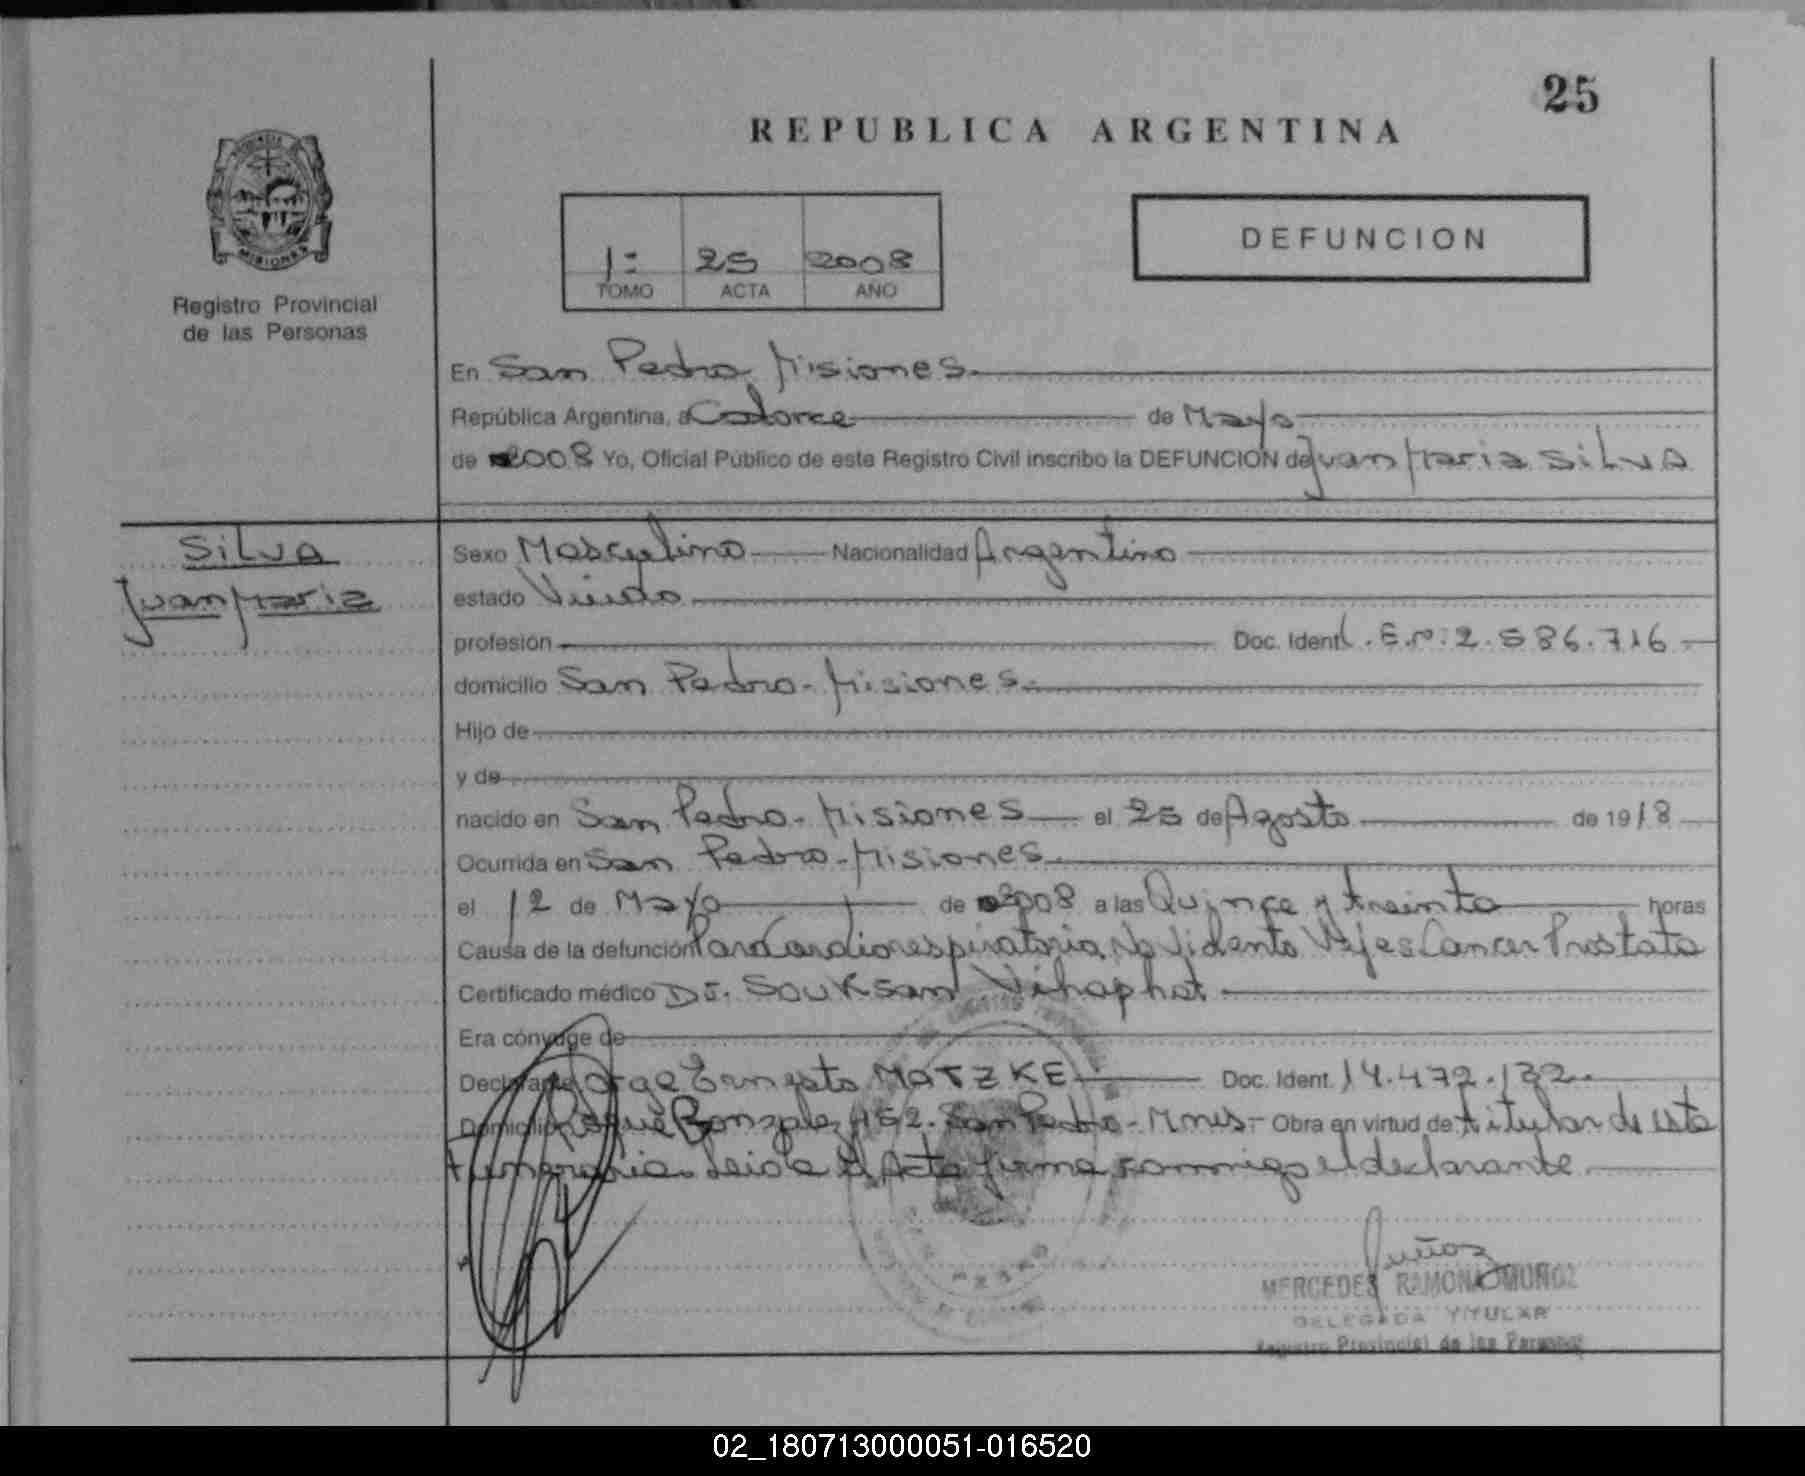 25
REPUBLICA ARGENTINA
MISIONES
Registro Provincial
de las Personas
1: 25 2008
TOMO ACTA AÑO
DEFUNCION
En San Pedro Misiones.
República Argentina, a Catorce de Mayo
de 2008 Yo, Oficial Público de este Registro Civil inscribo la DEFUNCION de Juan Maria SILVA
SILVA
Juan Maria
Sexo Masculino Nacionalidad Argentino
estado Viudo
profesión Doc. Ident L.E.Nº: 2.586.716
domicilio San Pedro - Misiones.
Hijo de
y de
nacido en San Pedro - Misiones el 25 de Agosto de 1918
Ocurrida en San Pedro - Misiones.
el 12 de Mayo de 2008 a las Quince y treinta horas
Causa de la defunción Paro Cardiorespiratorio, No Vidente Vejes Cancer Prostata
Certificado médico Dr. Souksan Vihaphat
Era cónyuge de
Declarante Jorge Ernesto MATZKE Doc. Ident. 14.472.132.
Domicilio Roque Gonzalez 452. San Pedro - Mnes - Obra en virtud de titular de esta
Funeraria. Leida el Acta firma conmigo el declarante
Muñoz
MERCEDES RAMONA MUÑOZ
DELEGADA TITULAR
Registro Provincial de las Personas
02_180713000051-016520